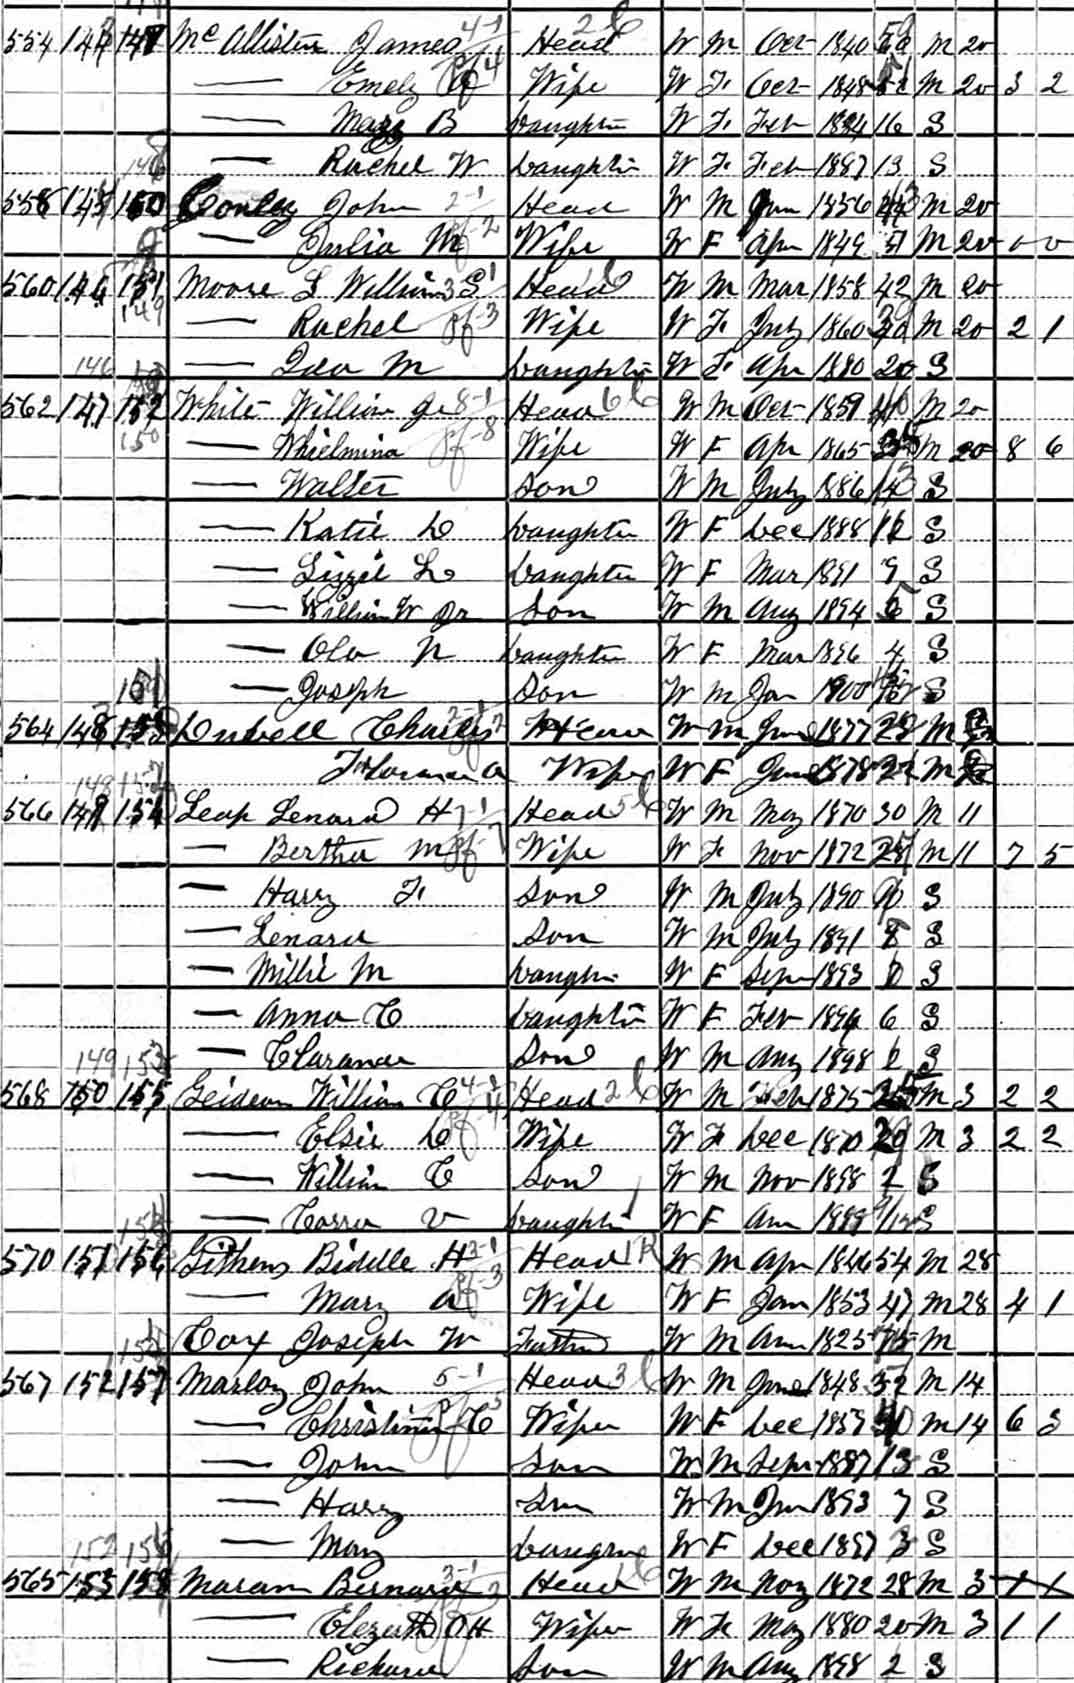 554 147 Mc Allister James Head W M Oct 1840 M 20
— Emely Wife W F Oct 1848 51 M 20 3 2
— Mary B Daughter W F Feb 1884 16 S
— Rachel W Daughter W F Feb 1887 13 S
558 145 150 Conley John Head W M Jun 1856 43 M 20
— Julia M Wife W F Apr 1849 51 M 20 0 0
560 146 151 Moore L William S Head W M Mar 1858 42 M 20
149 — Rachel Wife W F July 1860 39 M 20 2 1
146 — Ida M Daughter W F Apr 1880 20 S
562 147 152 White William Jr Head W M Oct 1859 40 M 20
150 — Whielmina Wife W F Apr 1865 35 M 20 8 6
— Walter Son W M July 1886 13 S
— Katie D Daughter W F Dec 1888 11 S
— Lizzie L Daughter W F Mar 1891 9 S
— William W Jr Son W M Aug 1894 5 S
— Ola N Daughter W F Mar 1896 4 S
— Joseph Son W M Jan 1900 S
564 148 153 Charles Head W M June 1877 22 M
Wife W F June 1878 21 M
566 149 154 Leap Lenard H Head W M May 1870 30 M 11
— Bertha M Wife W F Nov 1872 27 M 11 7 5
— Harry F Son W M July 1890 S
— Lenard Son W M July 1891 8 S
— Millie M Daughter W F Sep 1893 6 S
— Anna C Daughter W F Feb 1894 6 S
149 153 — Clarance Son W M Aug 1898 S
568 150 155 Geideon William C Head W M Feb 1875 25 M 3 2 2
— Elsie D Wife W F Dec 1870 29 M 3 2 2
— William C Son W M Nov 1898 2 S
— Corra V Daughter W F 1899 S
570 151 156 Githens Biddle H Head W M Apr 1846 54 M 28
— Mary A Wife W F Jan 1853 47 M 28 4 1
Cox Joseph W Father W M 1825 75 M
567 152 157 Marloy John Head W M June 1848 M 14
— Christina C Wife W F Dec 1859 40 M 14 6 3
— John Son W M Sep 1887 13 S
— Harry Son W M Jun 1893 7 S
152 — May Daughter W F Dec 1897 3 S
565 153 158 Maram Bernard Head W M Nov 1872 28 M 3
— H Wife W F May 1880 20 M 3 1 1
— Richard Son W M Aug 1898 2 S